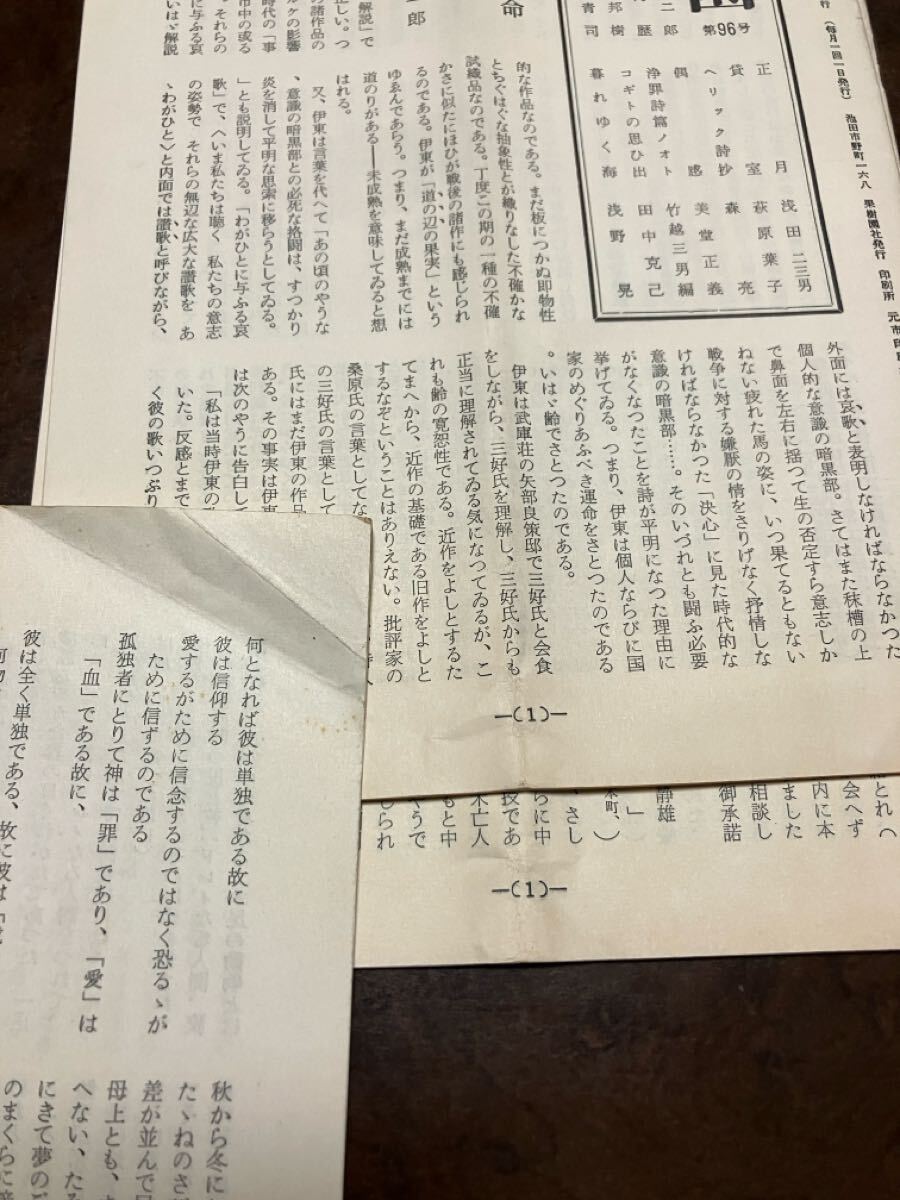 行 (毎月一回一日発行) 池田市野町一六八 果樹園社発行 印刷所 元市
第96号
正月 浅田二三男
貸室 萩原葉子
ヘリック詩抄 森亮
偶感 美堂正義
浄罪詩篇ノオト 竹越三男編
コギトの思ひ出 田中克己
暮れゆく海 浅野晃
二郎
歴
邦樹
青司
命
一郎
解説」で
正しい。つ
の諸作品の
ルケの影響
時代の「事
市中の或る
に与ふる哀
。それらの
いはゞ解説
的な作品なのである。まだ板につかぬ即物性
とちぐはぐな抽象性とが織りなした不確かな
試織品なのである。丁度この期の一種の不確
かさに似たにほひが戦後の諸作にも感じられ
るのである。伊東が「道の辺の果実」という
ゆゑんであらう。つまり、まだ成熟までには
道のりがある――未成熟を意味してゐると想
はれる。
又、伊東は言葉を代へて「あの頃のやうな
、意識の暗黒部との必死な格闘は、すつかり
炎を消して平明な思索に移らうとしてゐる。
」とも説明してゐる。「わがひとに与ふる哀
歌」で、〈いま私たちは聴く 私たちの意志
の姿勢で それらの無辺な広大な讃歌を あ
ゝわがひと〉と内面では讃歌と呼びながら、
外面には哀歌と表明しなければならなかつた
個人的な意識の暗黒部。さてはまた秣槽の上
で鼻面を左右に揺つて生の否定すら意志しか
ねない疲れた馬の姿に、いつ果てるともない
戦争に対する嫌厭の情をさりげなく抒情しな
ければならなかつた「決心」に見た時代的な
意識の暗黒部……。そのいづれとも闘ふ必要
がなくなつたことを詩が平明になつた理由に
挙げてゐる。つまり、伊東は個人ならびに国
家のめぐりあふべき運命をさとつたのである
。いはゞ齢でさとつたのである。
伊東は武庫荘の矢部良策邸で三好氏と会食
をしながら、三好氏を理解し、三好氏からも
正当に理解されてゐる気になつてゐるが、こ
れも齢の寛恕性である。近作をよしとするた
てまへから、近作の基礎である旧作をよしと
するなぞということはありえない。批評家の
桑原氏の言葉としてな
の三好氏の言葉として
氏にはまだ伊東の作品
ある。その事実は伊東
は次のやうに告白して
「私は当時伊東の
いた。反感とまで
く彼の歌いつぶり
―(1)―
会へず
内に本
ました
相談し
御承諾
静雄
」
本町、)
、さし
らに中
技であ
未亡人
もと中
くうで
しられ
―(1)―
何となれば彼は単独である故に
彼は信仰する
愛するがために信念するのではなく恐るゝが
ために信ずるのである
孤独者にとりて神は「罪」であり、「愛」は
「血」である故に、
彼は全く単独である、故に彼は
秋から冬に
たゝねのさ
差が並んで
母上とも、
へない、た
にきて夢の
のまくらに